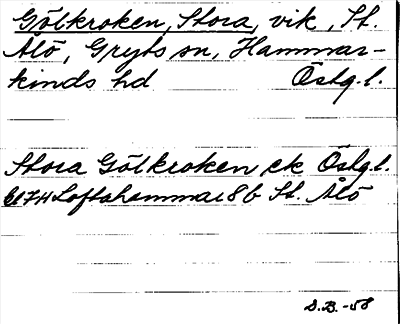 Götkroken, Stora, vik, St.
Ålö, Gryts sn, Hammar-
kinds hd Östg.l.
Stora Götkroken ek Östg.l.
6174 Loftahammar 8b St. Ålö
D.B. -58